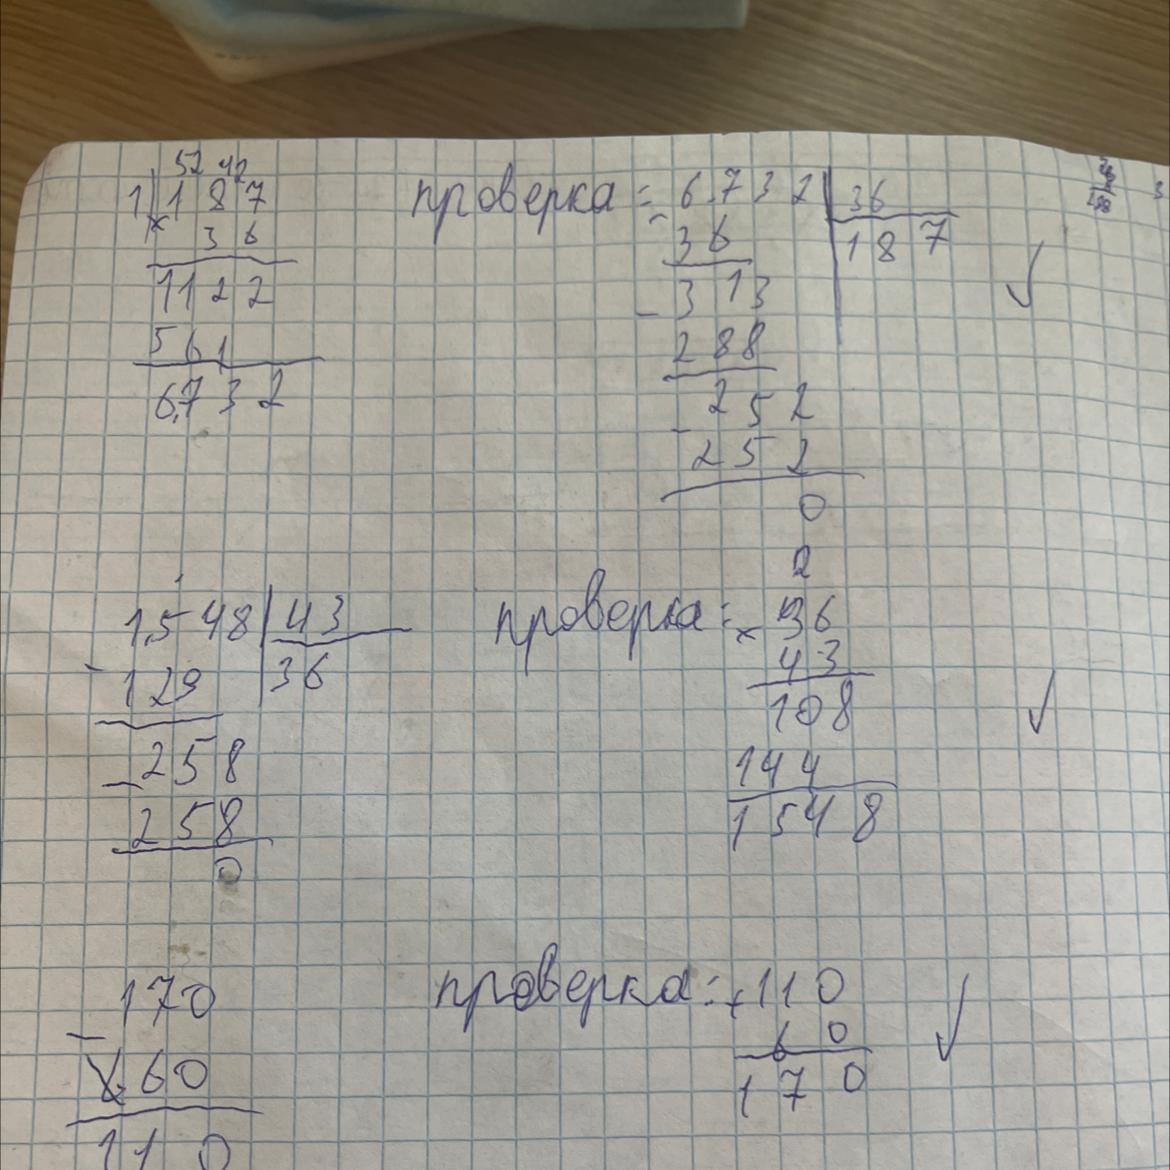 52 42
1) 187 проверка = 6732 | 36
× 36 - 36 187 ✓
1122 - 313
561 288
6732 - 252
252
0
1548 | 43 проверка = 2
- 129 36 × 36
- 258 43 ✓
258 108
0 144
1548
170 проверка: + 110
- 60 60 ✓
110 170